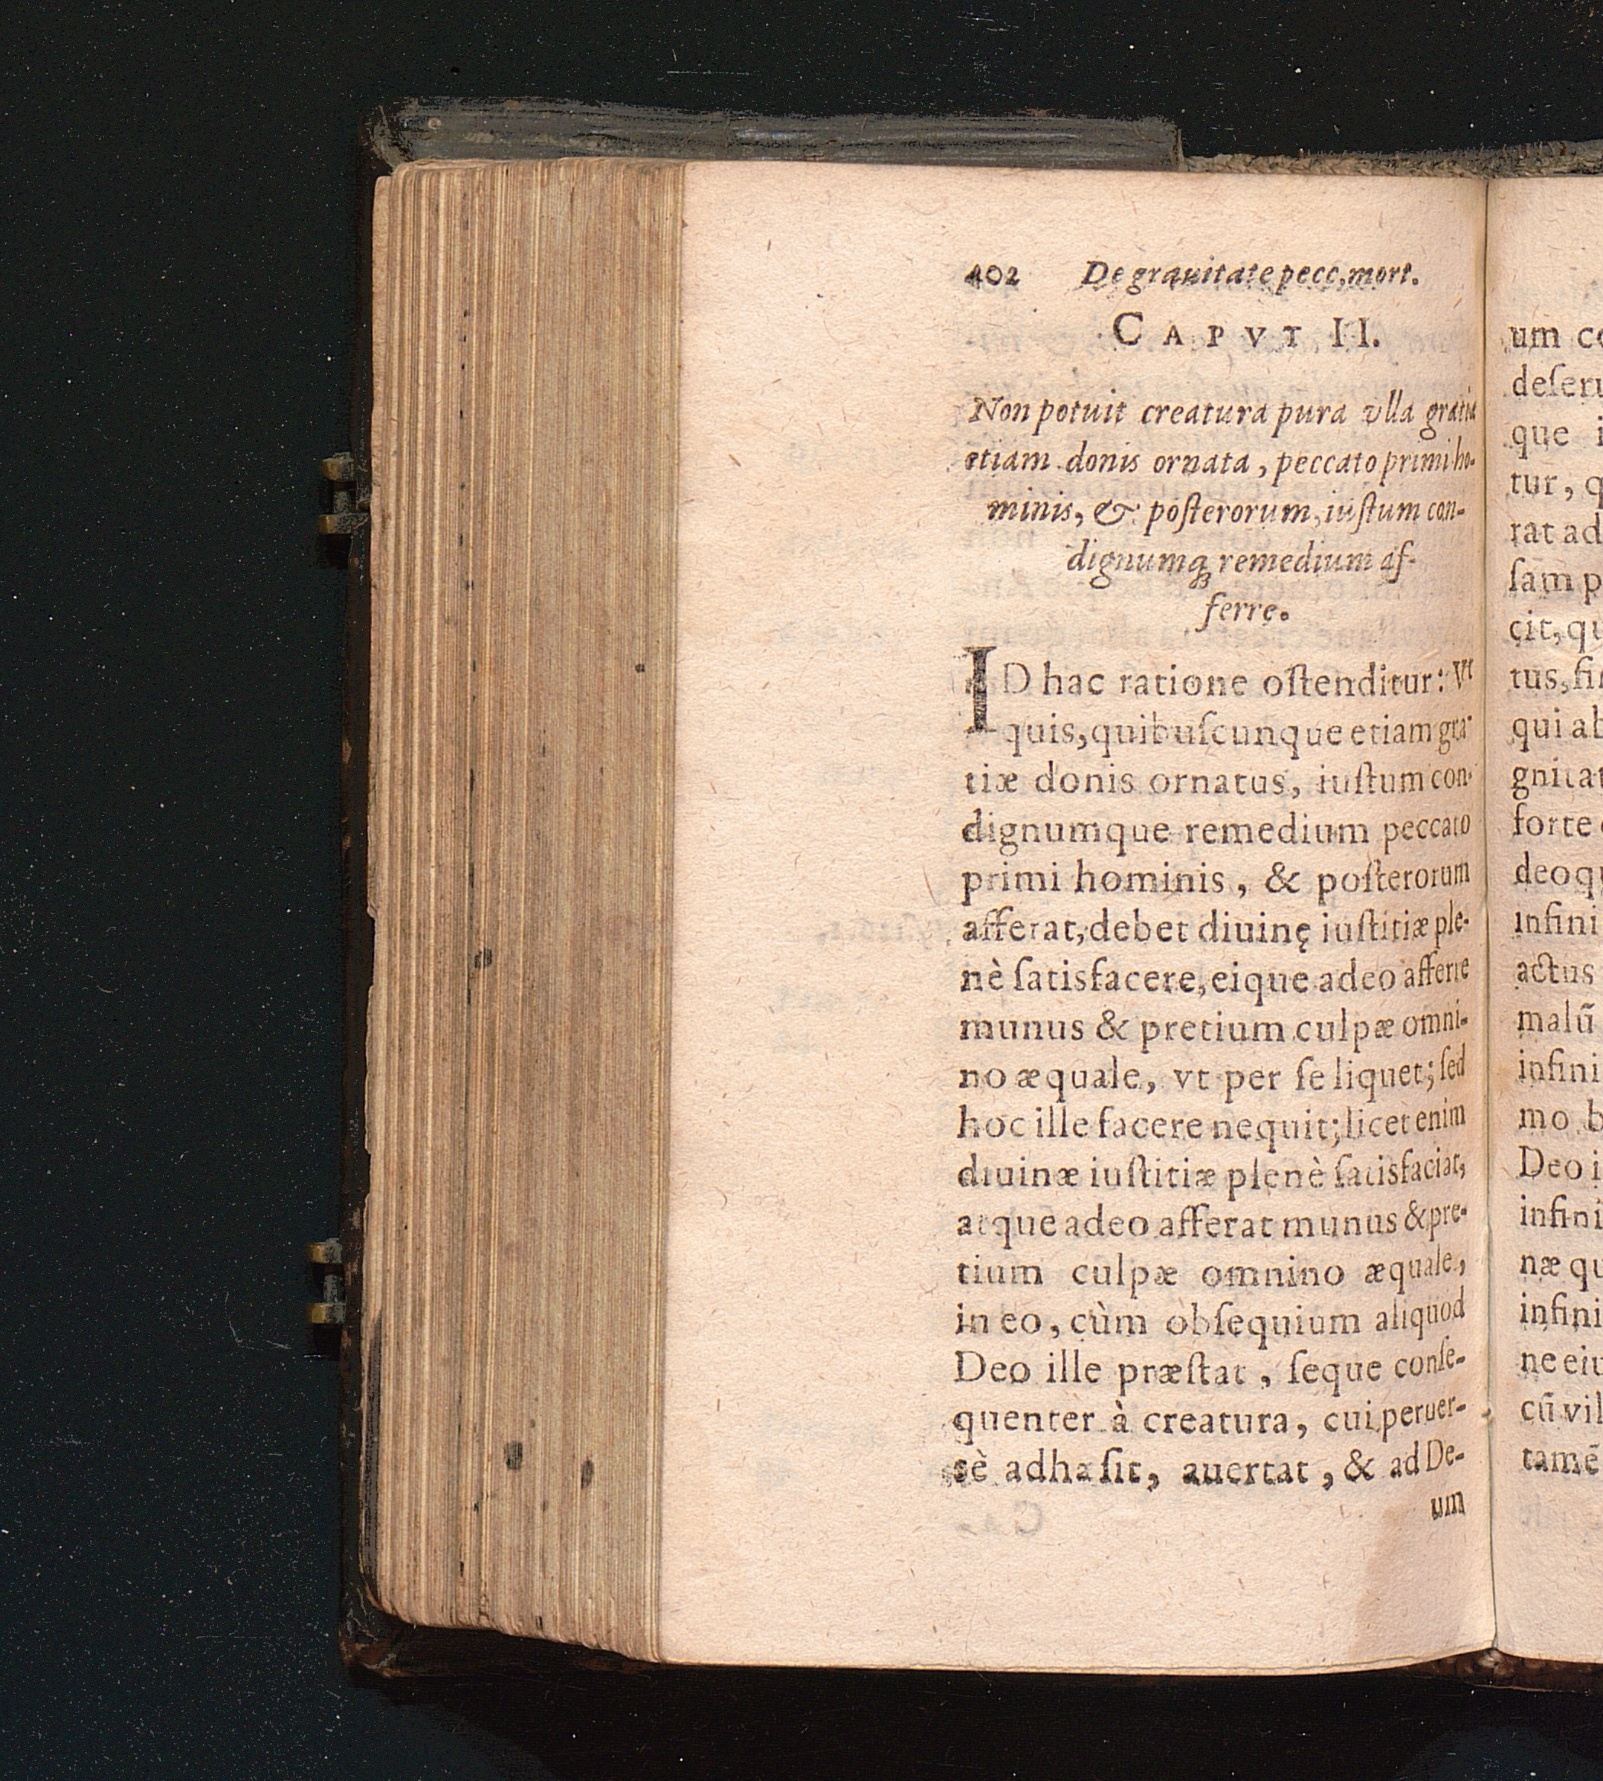 402 De grauitate pecc, mort.
CAPVT II.
Non potuit creatura pura vlla gratia
etiam donis ornata, peccato primi ho-
minis, & poſterorum, iuſtum con-
dignumq; remedium af-
ferre.
ID hac ratione oſtenditur: Vt
quis, quibuſcunque etiam gra-
tiæ donis ornatus, iuſtum con-
dignumque remedium peccato
primi hominis, & poſterorum
afferat, debet diuinę iuſtitiæ ple-
nè ſatisfacere, eique adeo afferre
munus & pretium culpæ omni-
no æquale, vt per ſe liquet; ſed
hoc ille facere nequit; licet enim
diuinæ iuſtitiæ plenè ſatisfaciat,
atque adeo afferat munus & pre-
tium culpæ omnino æquale,
in eo, cùm obſequium aliquod
Deo ille præſtat, ſeque conſe-
quenter à creatura, cui peruer-
sè adhæſit, auertat, & ad De-
um
um
deſeru
que
tur,
rat ad
ſam
cit,
tus,
qui
gnitat
forte
deo
infini
actus
malũ
infini
mo
Deo
infini
næ
infini
ne
cũ
tamẽ